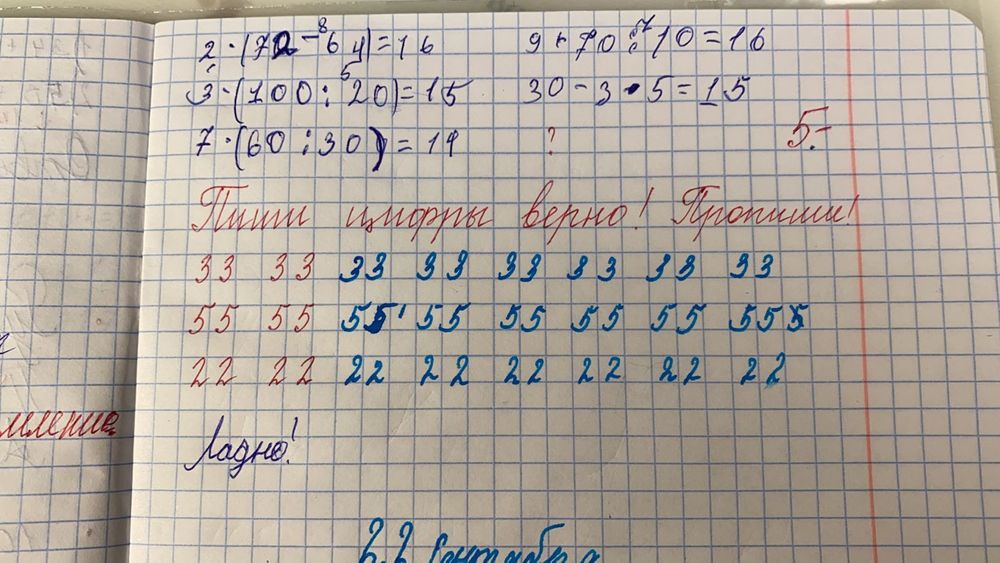 2 · (72 - 64) = 16 9 + 70 : 10 = 16
3 · (100 : 20) = 15 30 - 3 · 5 = 15
7 · (60 : 30) = 14 ? 5-
Пиши цифры верно! Пропиши!
33 33 33 33 33 33 33 33
55 55 55 55 55 55 55 555
22 22 22 22 22 22 22 22
мление
Ладно!
22 Сентября